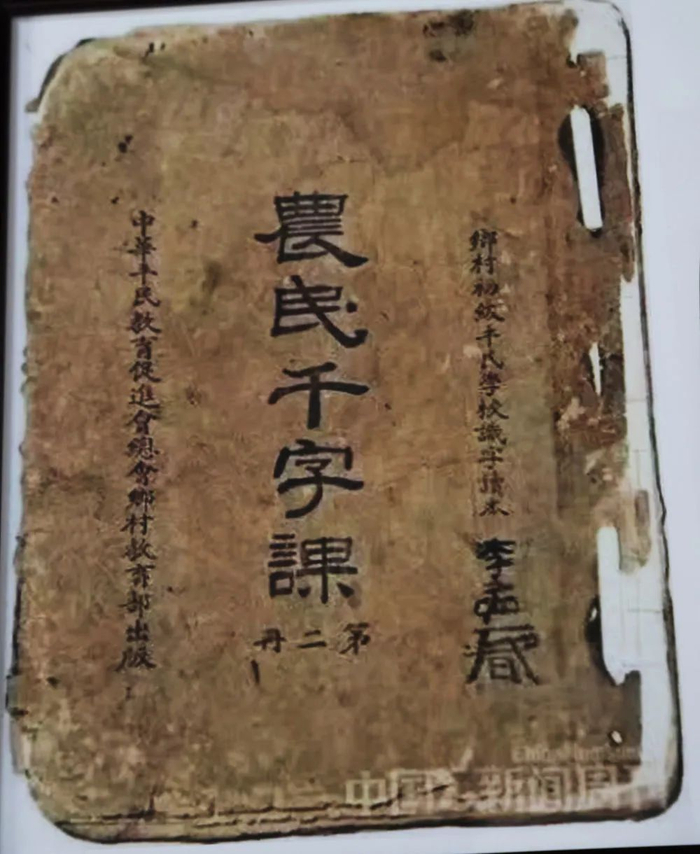 鄉村初級平民學校識字讀本
李孟
農民千字課
第二冊
中華平民教育促進會總會鄉村教育部出版
中国新闻周刊